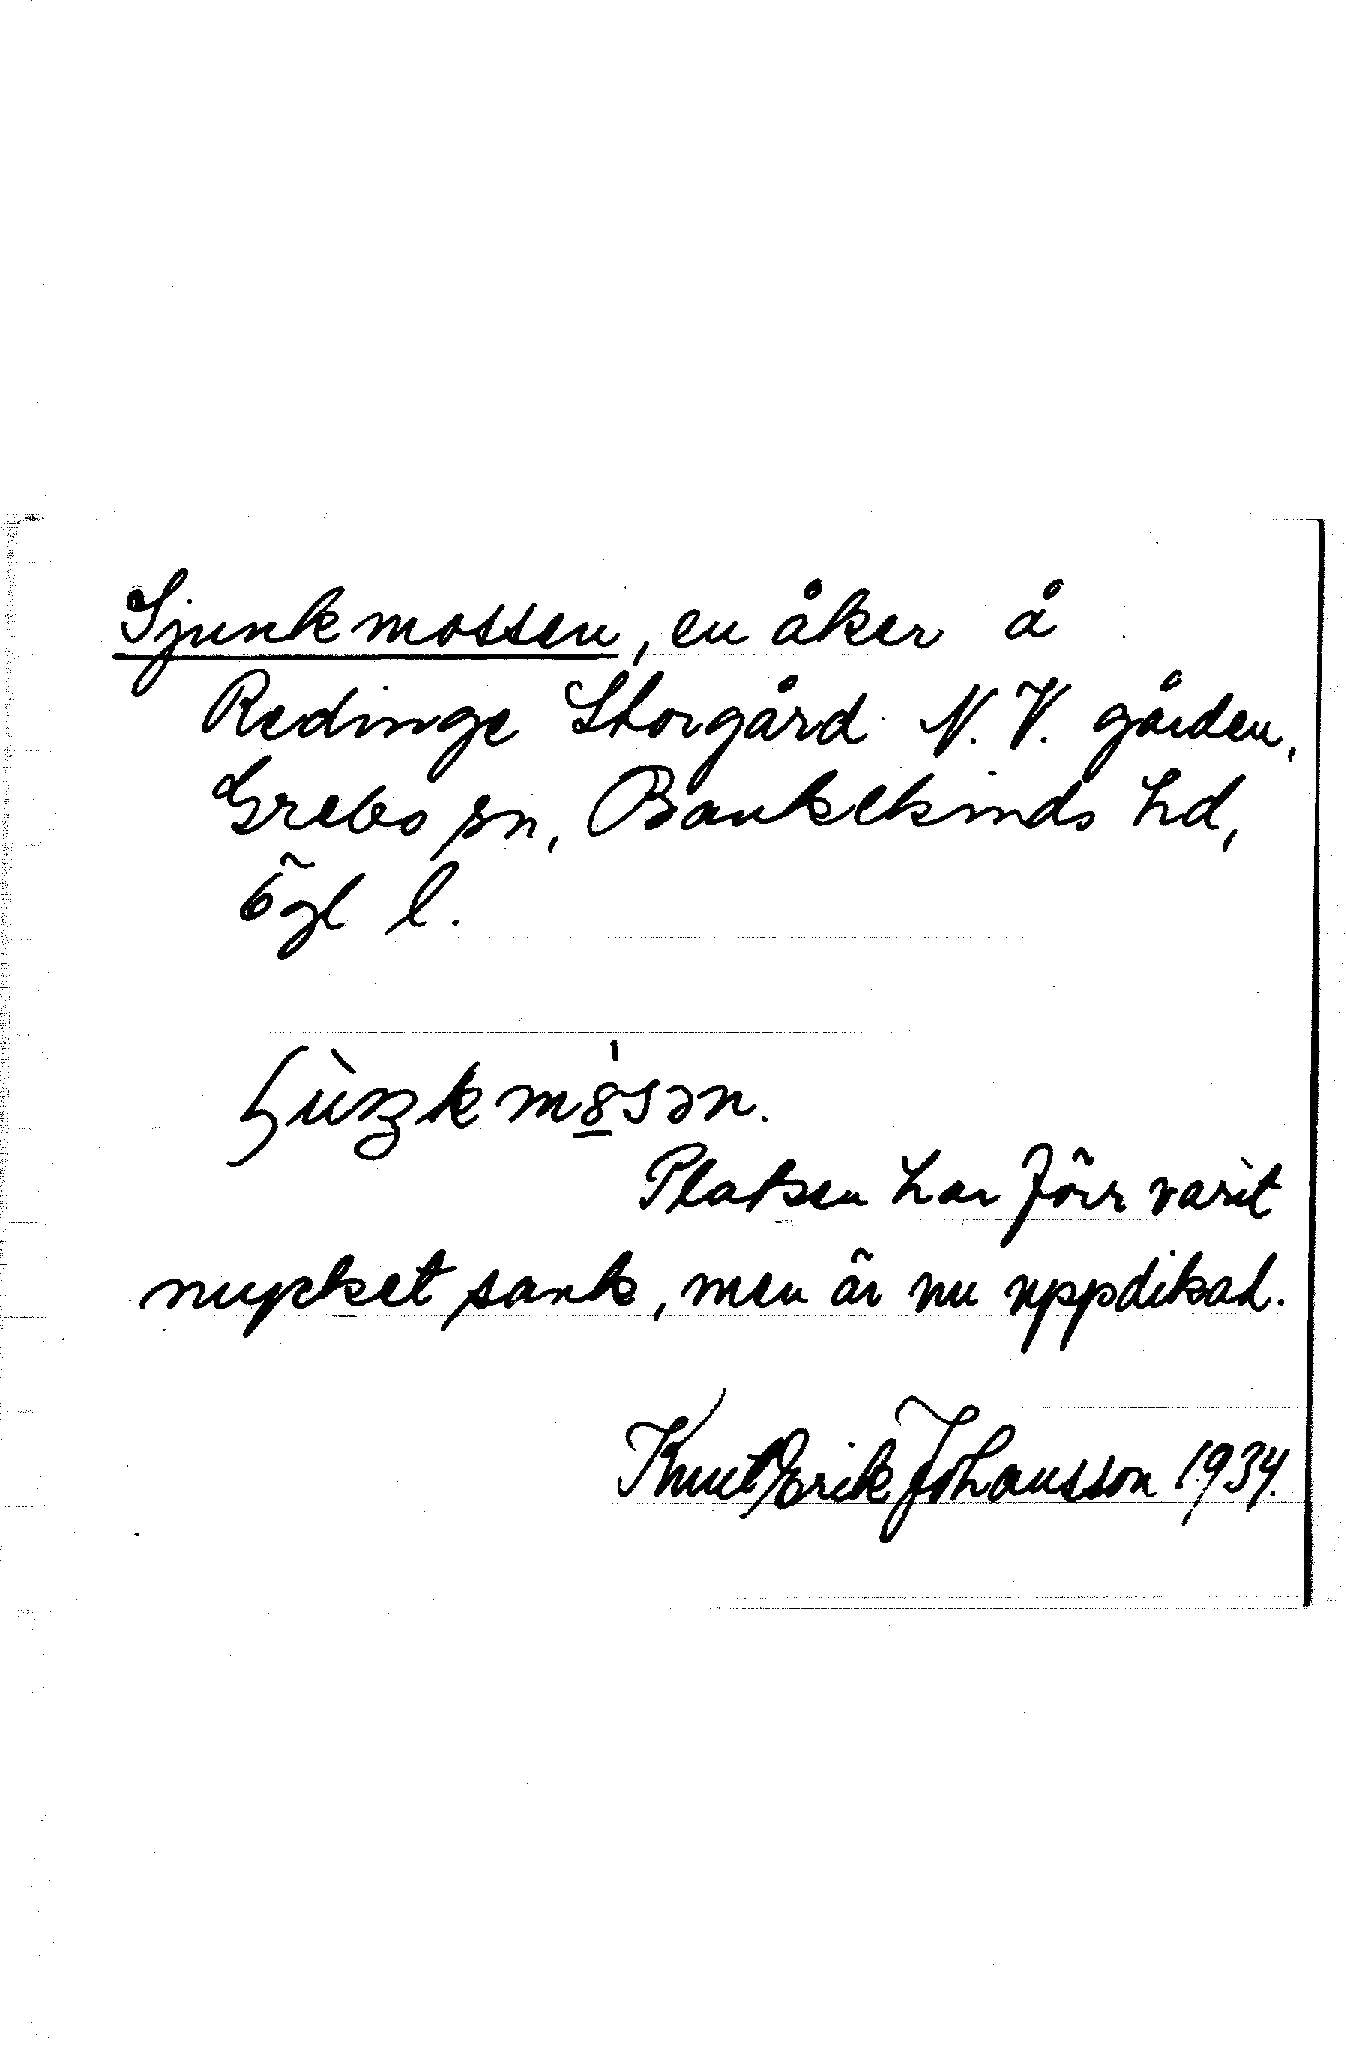 Sjunkmossen, en åker å
Redinge Storgård N.V. gården,
Grebo sn, Bankekinds hd,
Ögl l.
Platsen har förr varit
mycket sank, men är nu uppdikad.
Knut Erik Johansson 1934.